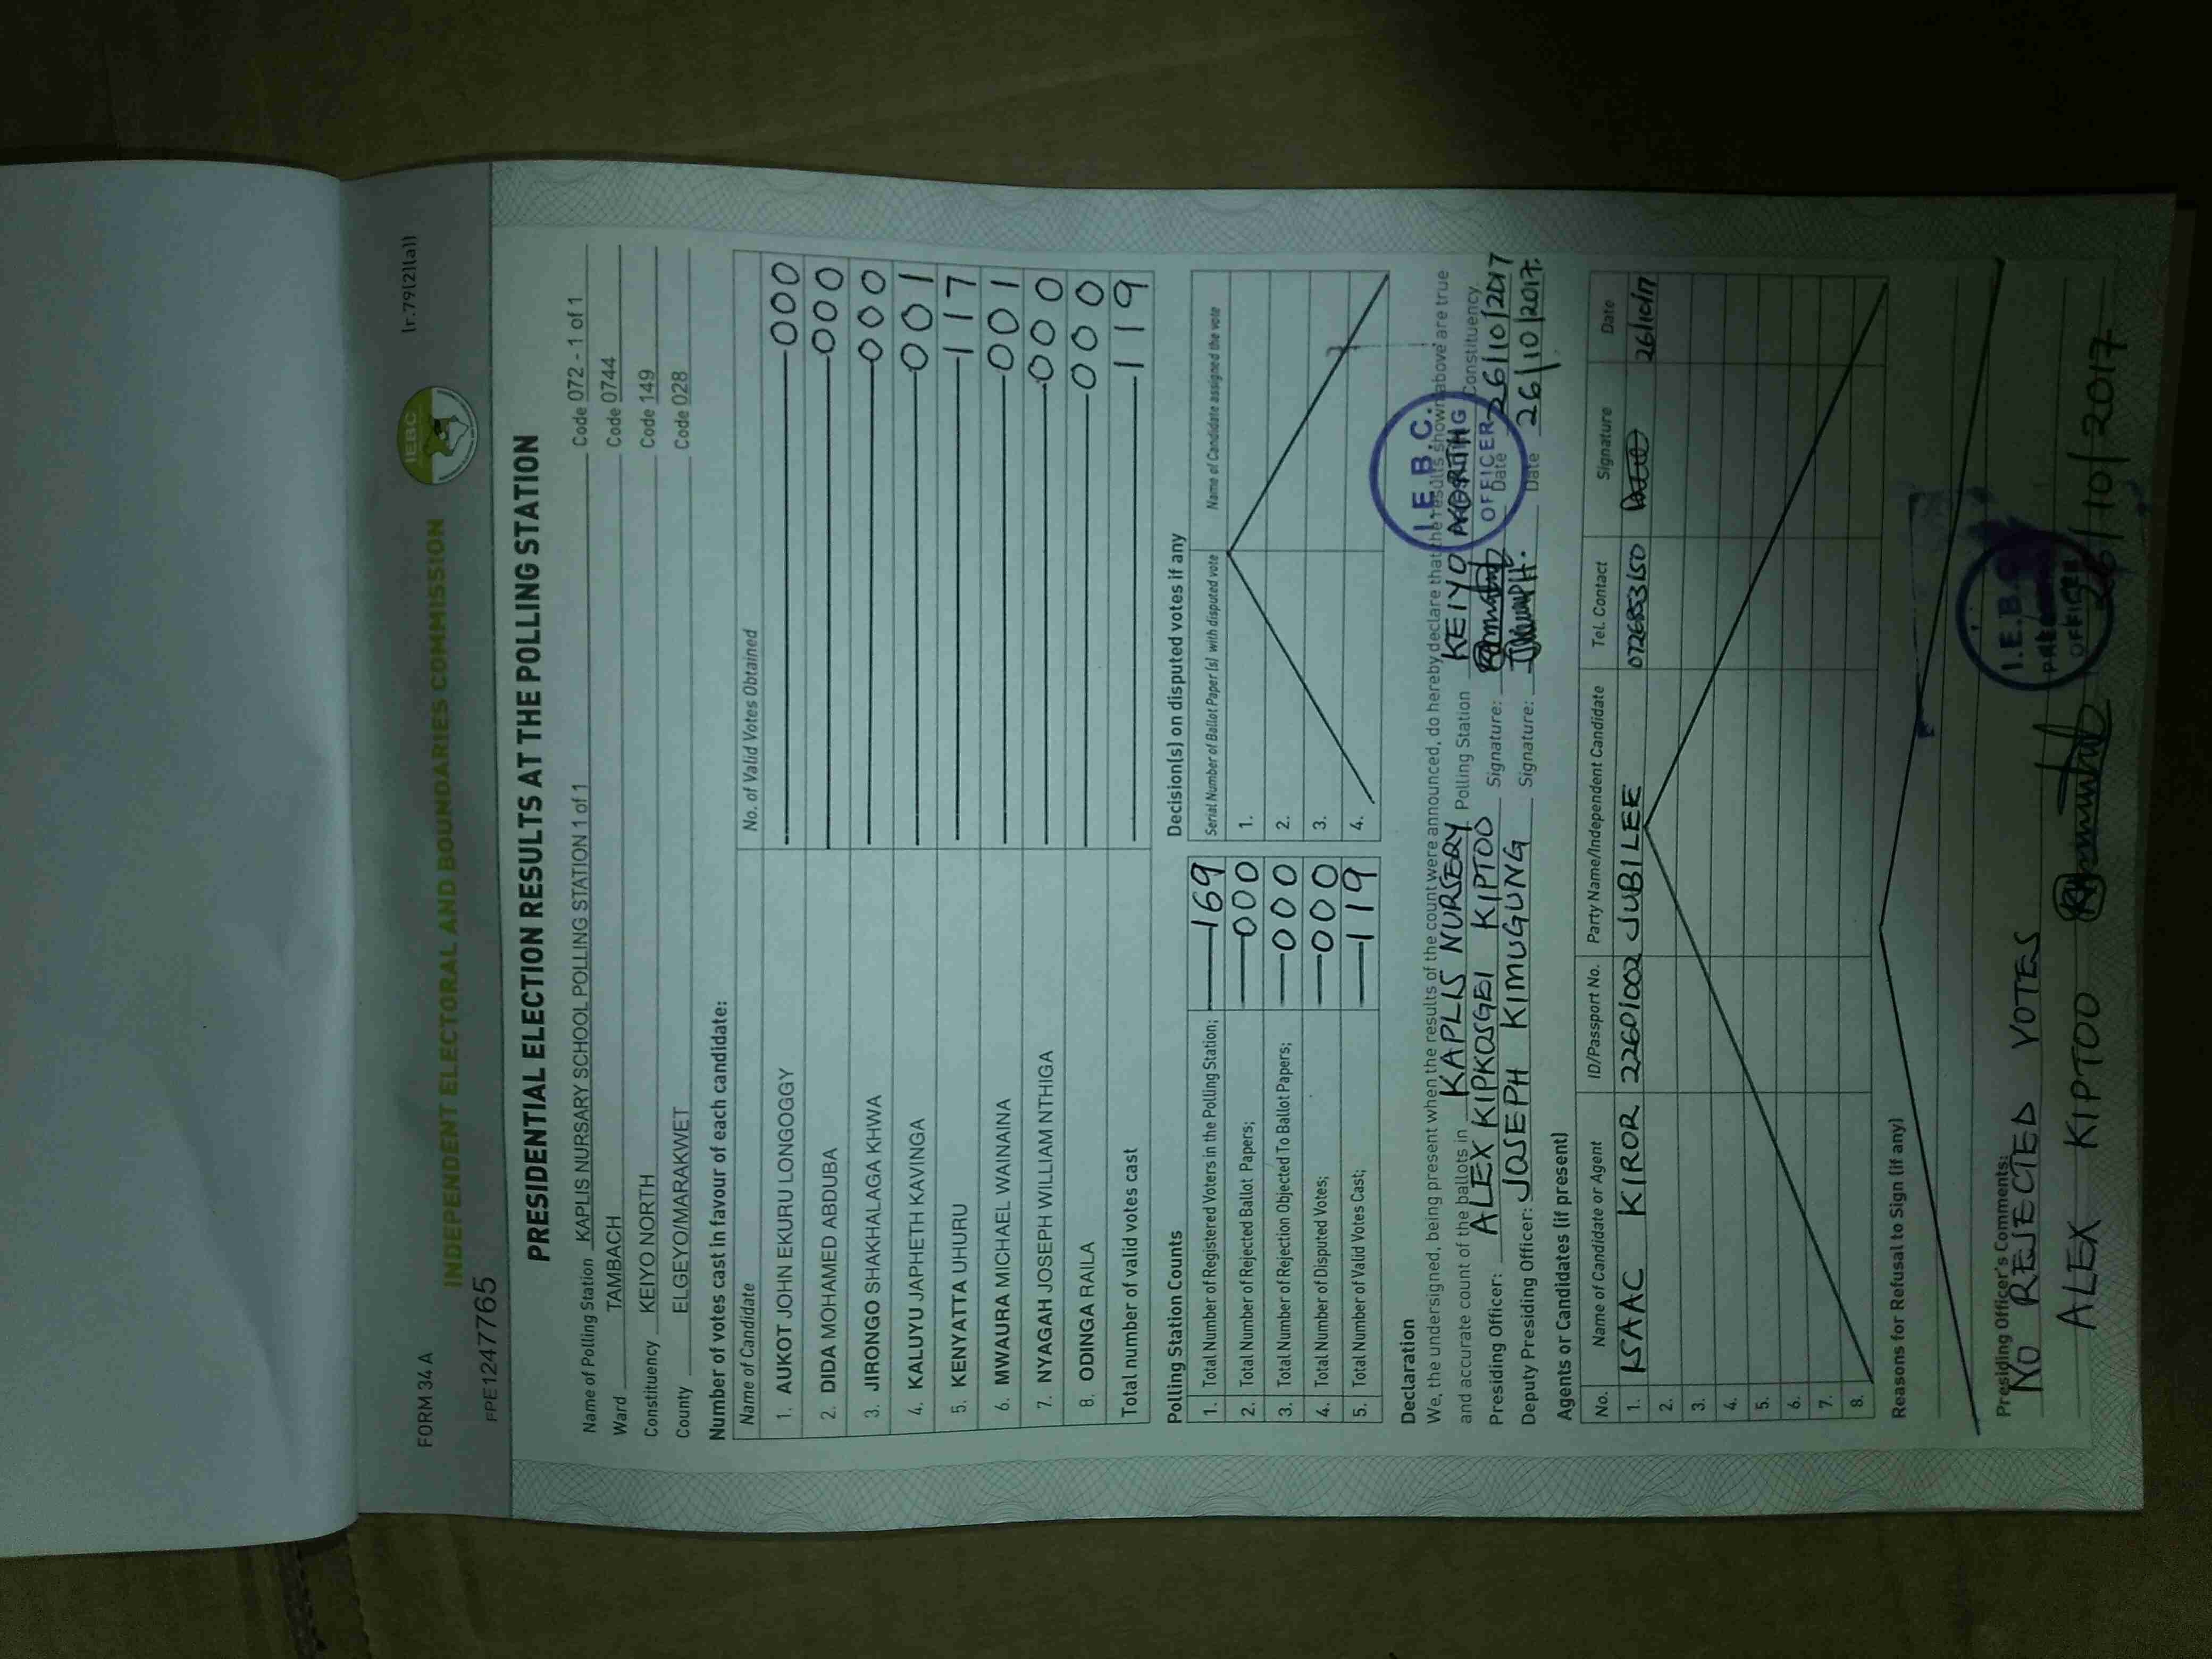 FORM 34 A
(r.79(2)(a))
IEBC
INDEPENDENT ELECTORAL AND BOUNDARIES COMMISSION
FPE1247765
PRESIDENTIAL ELECTION RESULTS AT THE POLLING STATION
Name of Polling Station KAPLIS NURSARY SCHOOL POLLING STATION 1 of 1 Code 072 - 1 of 1
Ward TAMBACH Code 0744
Constituency KEIYO NORTH Code 149
County ELGEYO/MARAKWET Code 028
Number of votes cast in favour of each candidate:
Name of Candidate No. of Valid Votes Obtained
1. AUKOT JOHN EKURU LONGOGGY 000
2. DIDA MOHAMED ABDUBA 000
3. JIRONGO SHAKHALAGA KHWA 000
4. KALUYU JAPHETH KAVINGA 001
5. KENYATTA UHURU 117
6. MWAURA MICHAEL WAINAINA 001
7. NYAGAH JOSEPH WILLIAM NTHIGA 000
8. ODINGA RAILA 000
Total number of valid votes cast 119
Polling Station Counts
1. Total Number of Registered Voters in the Polling Station; 169
2. Total Number of Rejected Ballot Papers; 000
3. Total Number of Rejection Objected To Ballot Papers; 000
4. Total Number of Disputed Votes; 000
5. Total Number of Valid Votes Cast; 119
Decision(s) on disputed votes if any
Serial Number of Ballot Paper (s) with disputed vote Name of Candidate assigned the vote
1.
2.
3.
4.
Declaration
We, the undersigned, being present when the results of the count were announced, do hereby declare that the results shown above are true
and accurate count of the ballots in KAPLIS NURSERY Polling Station KEIYO NORTH Constituency
Presiding Officer: ALEX KIPKOSGEI KIPTOO Signature: Date 26/10/2017
Deputy Presiding Officer: JOSEPH KIMUGUNG Signature: Date 26/10/2017.
I.E.B.C.
OFFICER
Agents or Candidates (if present)
No. Name of Candidate or Agent ID/Passport No. Party Name/Independent Candidate Tel. Contact Signature Date
1. ISAAC KIROR 22601002 JUBILEE 26/10/17
2.
3.
4.
5.
6.
7.
8.
Reasons for Refusal to Sign (if any)
Presiding Officer's Comments:
NO REJECTED VOTES
ALEX KIPTOO 26/10/2017
I.E.B.C.
OFFICER